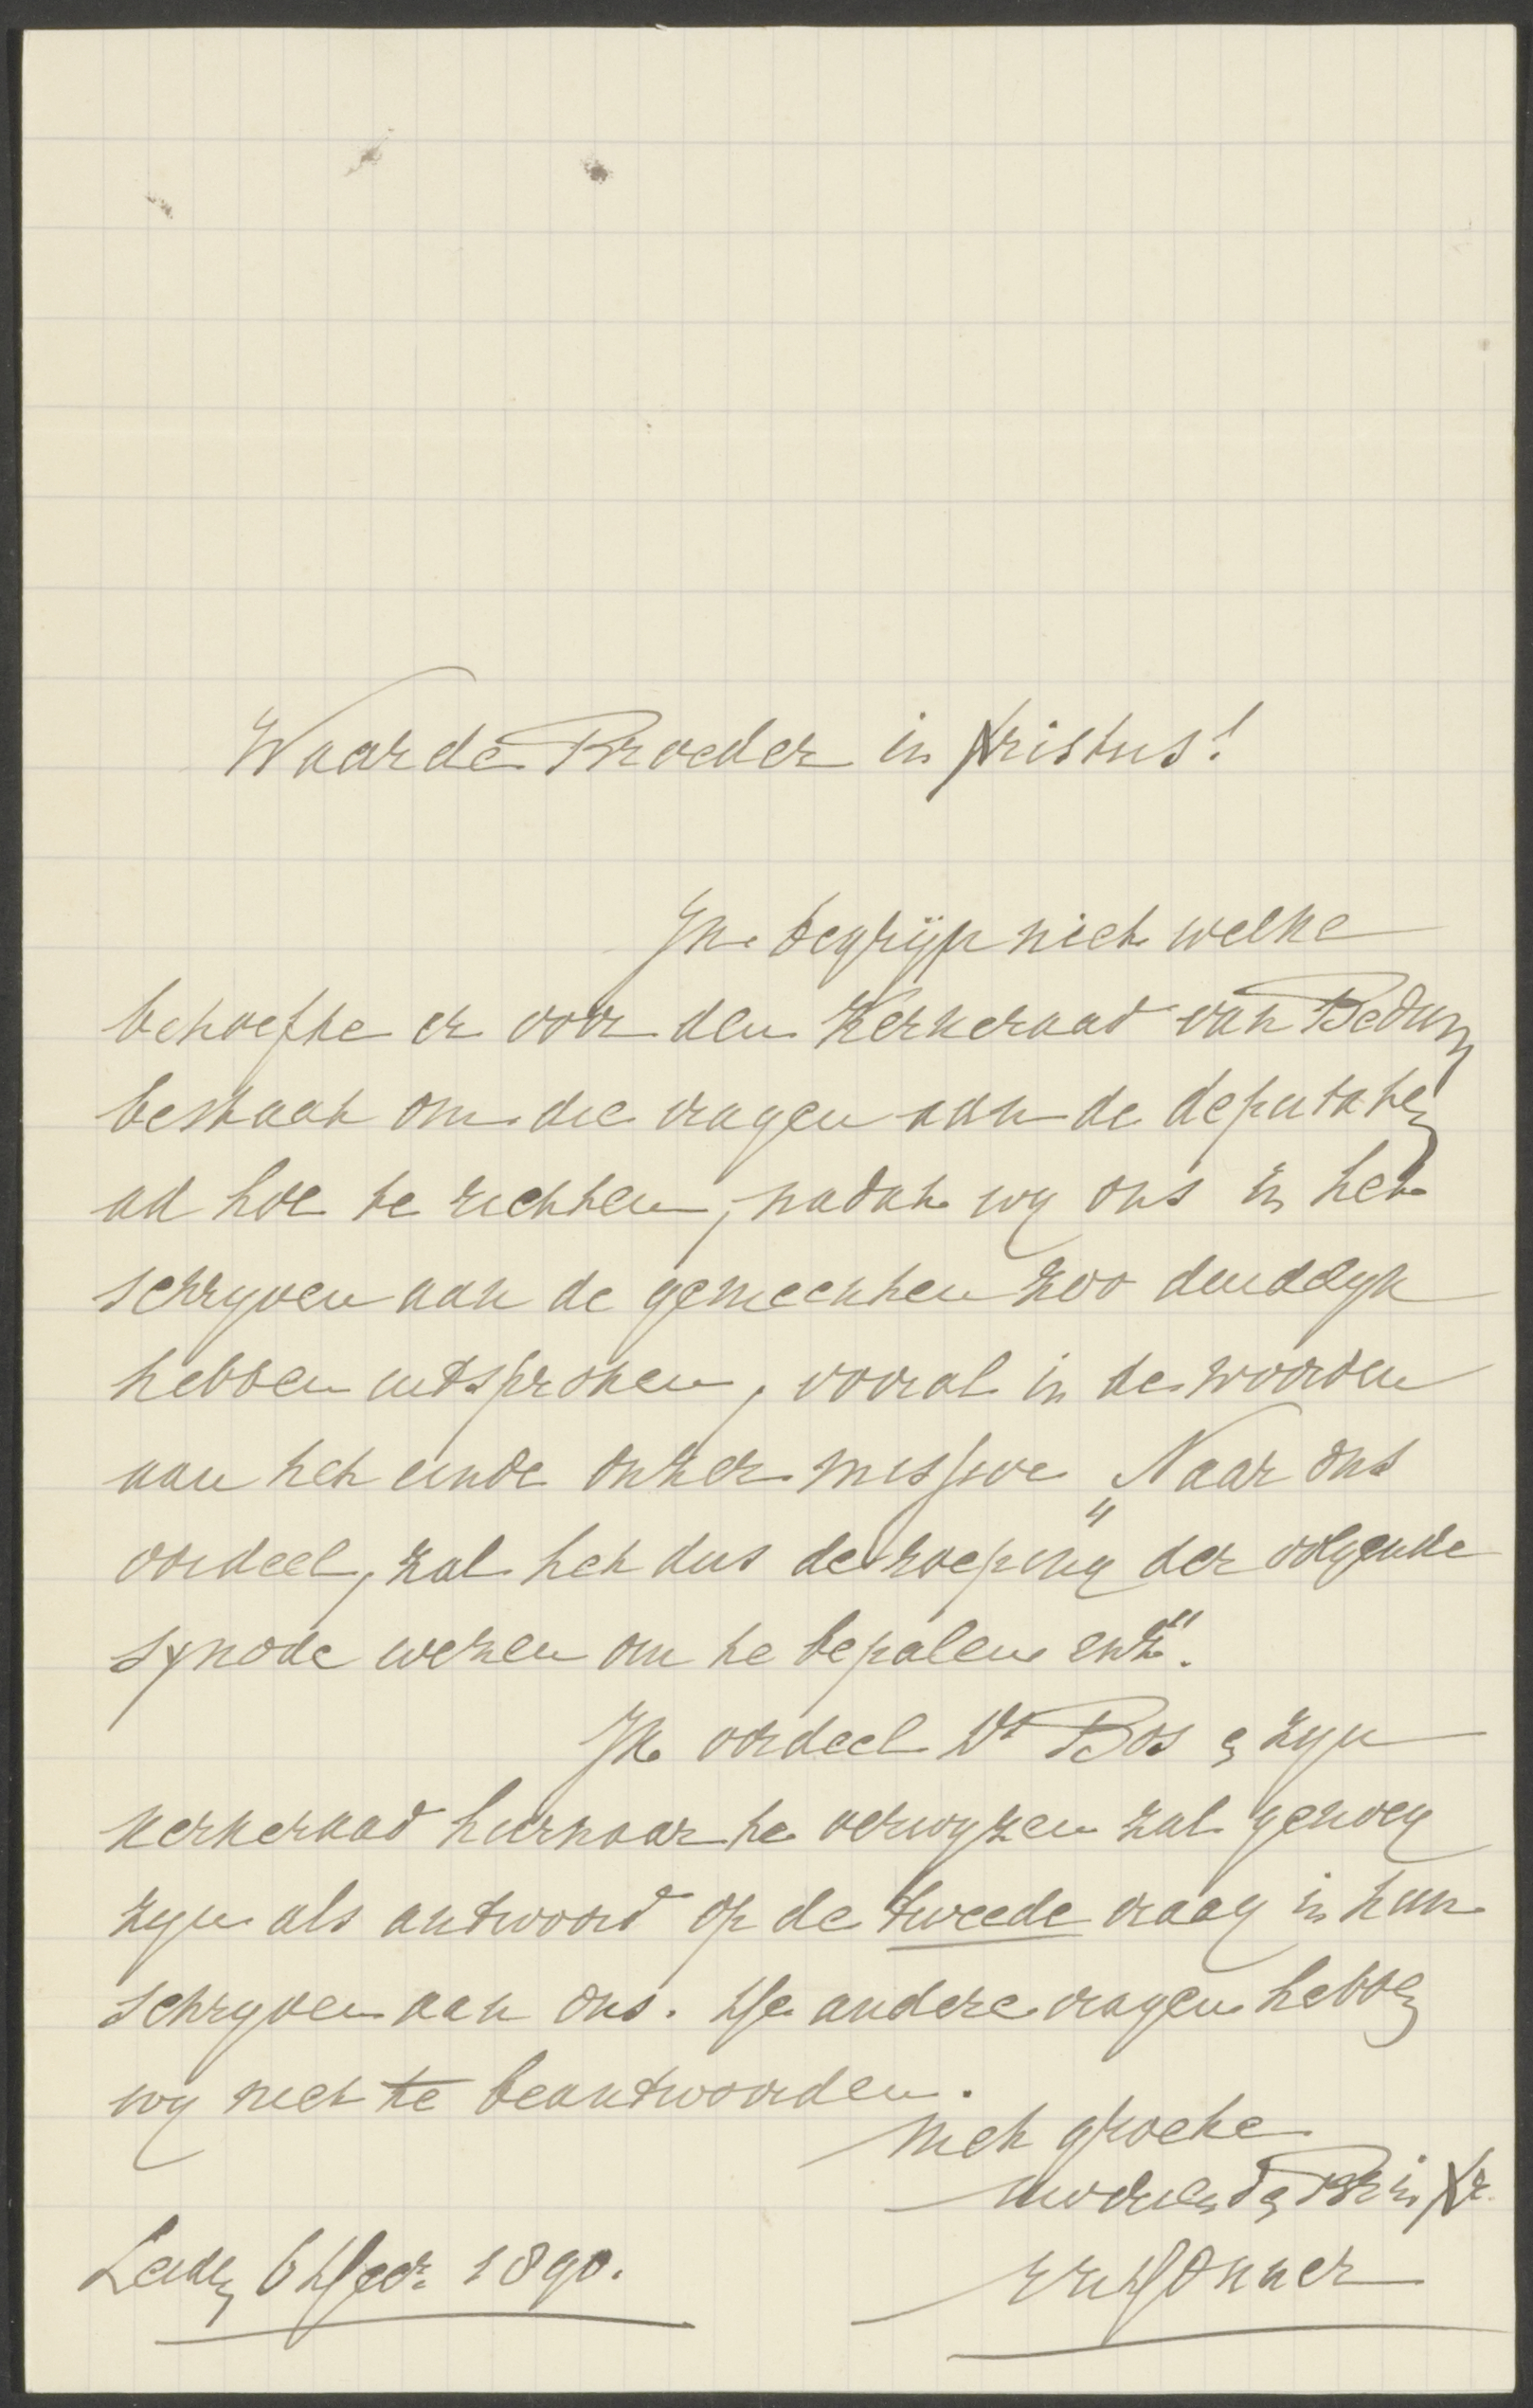 Waarde Broeder in Xristus!
Ik begrijp niet welke
behoefte er voor den Kerkeraad van Bedum
bestaat om die vragen aan de deputaten
ad hoc te richten, nadat wy ons in het
schryven aan de gemeenten zoo duidelyk
hebben uitsproken, vooral in de woorden
aan het einde onzer missive „Naar ons
oordeel, zal het dus de roeping der volgende
synode wezen om te bepalen enz".
Ik oordeel Ds Bos en zyn
kerkeraad hiernaar te verwyzen zal genoeg
zyn als antwoord op de tweede vraag in hun
schryven aan ons. De andere vragen hebben
wy niet te beantwoorden.
Met groete
Uw dienstv Br in Xr.
JH Donner
Leiden 6 Dec. 1890.